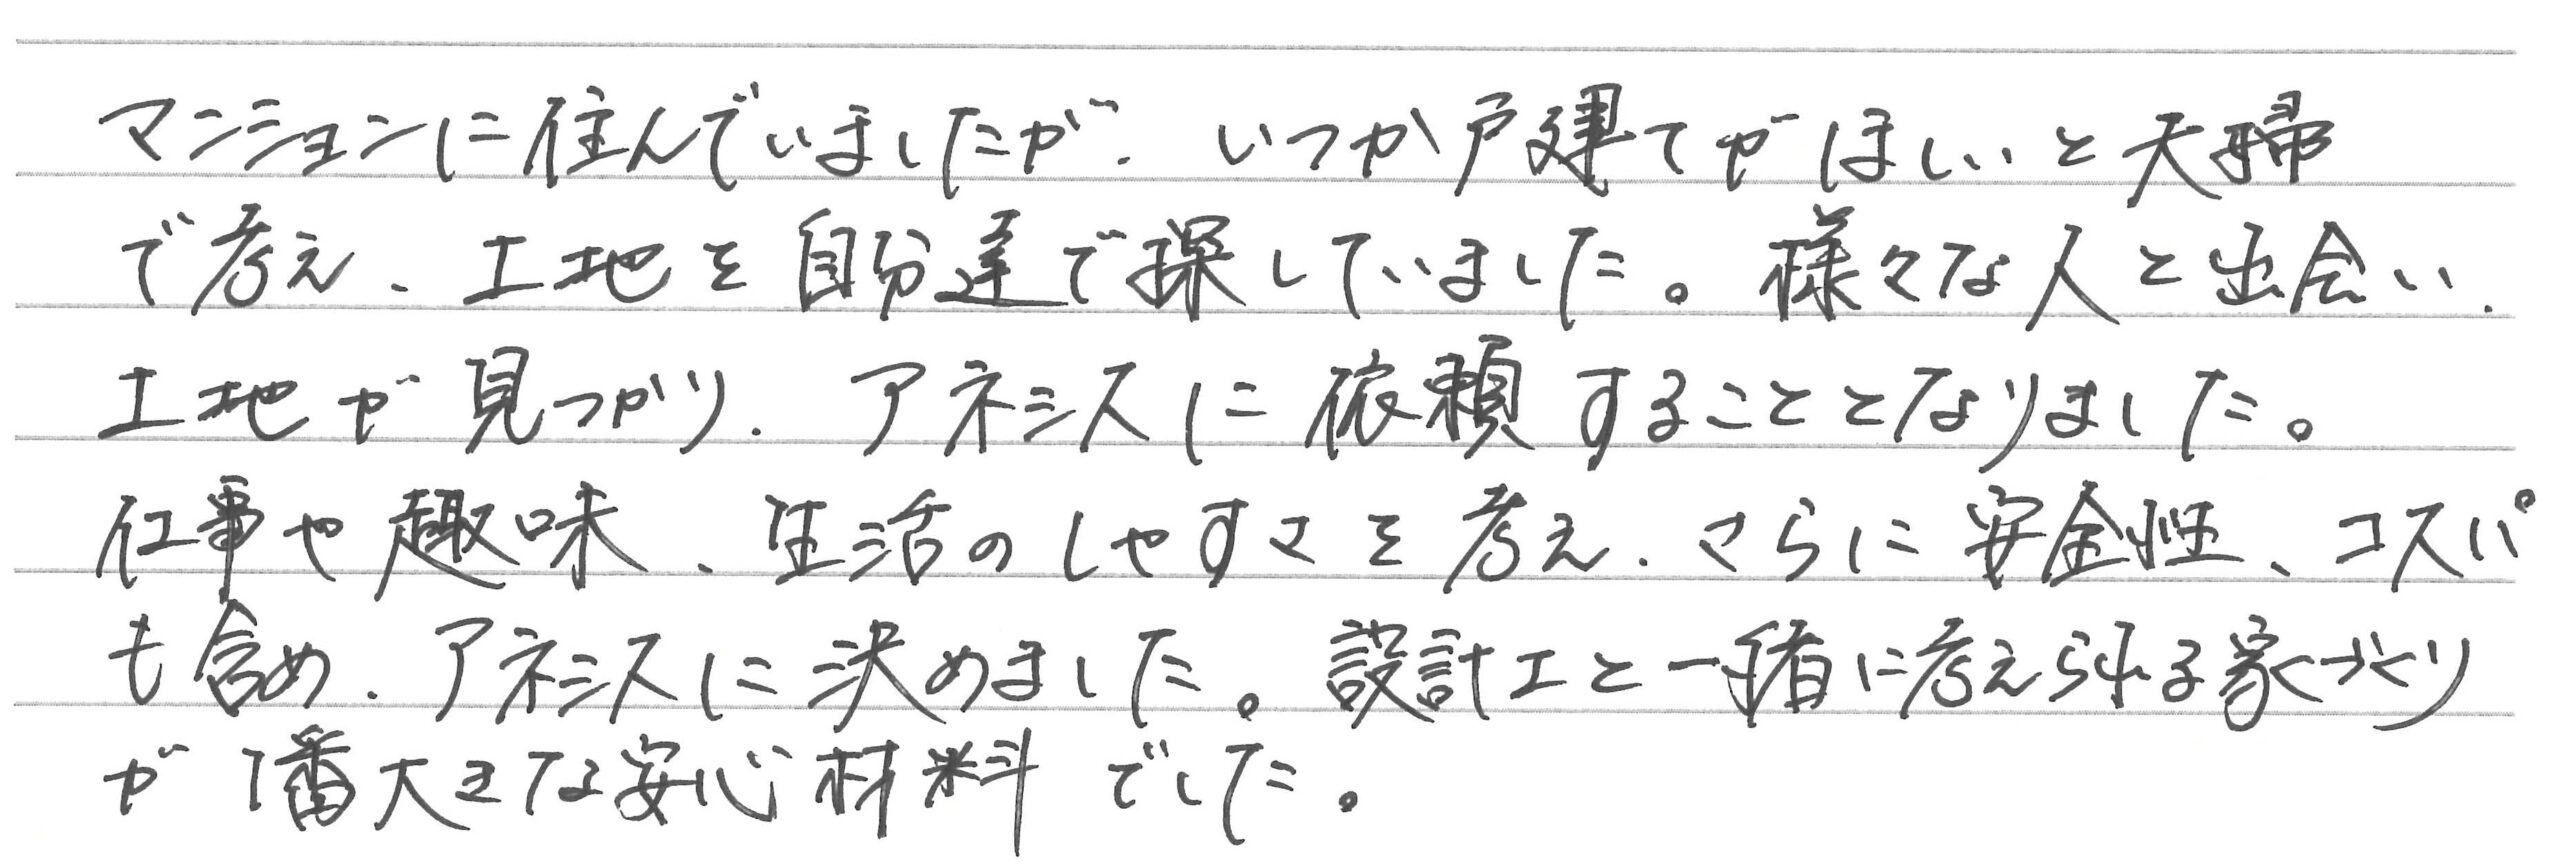 マンションに住んでいましたが、いつか戸建てがほしいと夫婦
で考え、土地を自分達で探していました。様々な人と出会い、
土地が見つかり、アネシスに依頼することとなりました。
仕事や趣味、生活のしやすさを考え、さらに安全性、コスパ
も含め、アネシスに決めました。設計士と一緒に考えられる家づくり
が1番大きな安心材料でした。